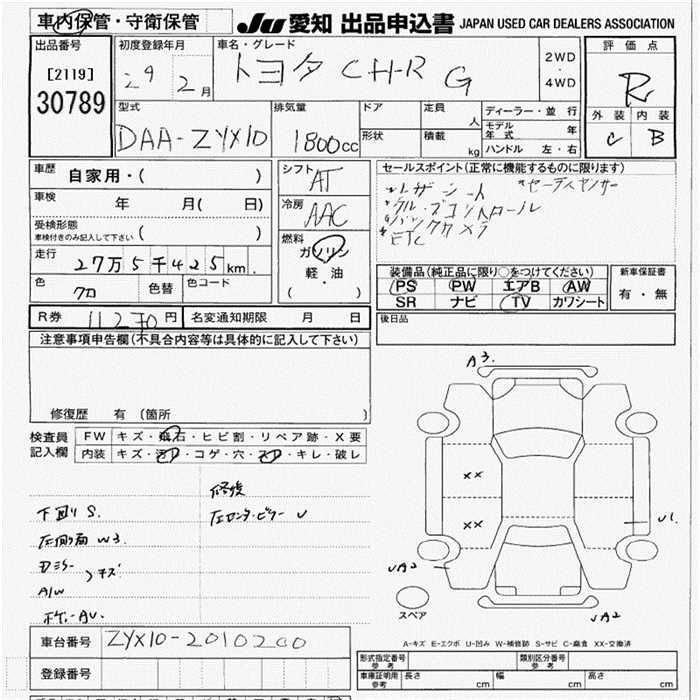 車内保管・守衛保管
JU 愛知 出品申込書 JAPAN USED CAR DEALERS ASSOCIATION
出品番号
[2119]
30789
初度登録年月
29年 2月
車名・グレード
トヨタ CH-R G
2WD
・
4WD
評価点
R
外装 内装
C B
型式
DAA-ZYX10
排気量
1800cc
ドア
形状
定員 人
積載 kg
ディーラー・並行
モデル年式 年
ハンドル 左・右
車歴
自家用・( )
車検
年 月( 日)
受検形態
車検付きのみ記入して下さい ( )
走行
27万5千425km.
色
クロ
色替
色コード
シフト
AT
冷房
AAC
燃料
ガソリン
軽・油
( ・ )
セールスポイント(正常に機能するものに限ります)
レザーシート
クルーズコントロール
バックカメラ
ETC
装備品(純正品に限り○をつけてください)
PS PW エアB AW
SR ナビ TV カワシート
新車保証書
有・無
R券 11270円
名変通知期限 月 日
後日品
注意事項申告欄(不具合内容等は具体的に記入して下さい)
修復歴 有 (箇所 )
検査員
記入欄
FW キズ・飛石・ヒビ割・リペア跡・X要
内装 キズ・汚レ・コゲ・穴・スレ・キレ・破レ
下回り S.
左側面 W3
A/W
修復
左センターピラー U
A3.
XX
XX
U1.
UA2
UA2
スペア
A-キズ E-エクボ U-凹み W-補修跡 S-サビ C-腐食 XX-交換済
車台番号 ZYX10-2010200
登録番号
形式指定番号
参考
類別区分番号
参考
車庫証明用
参考
長さ cm
幅 cm
高さ cm